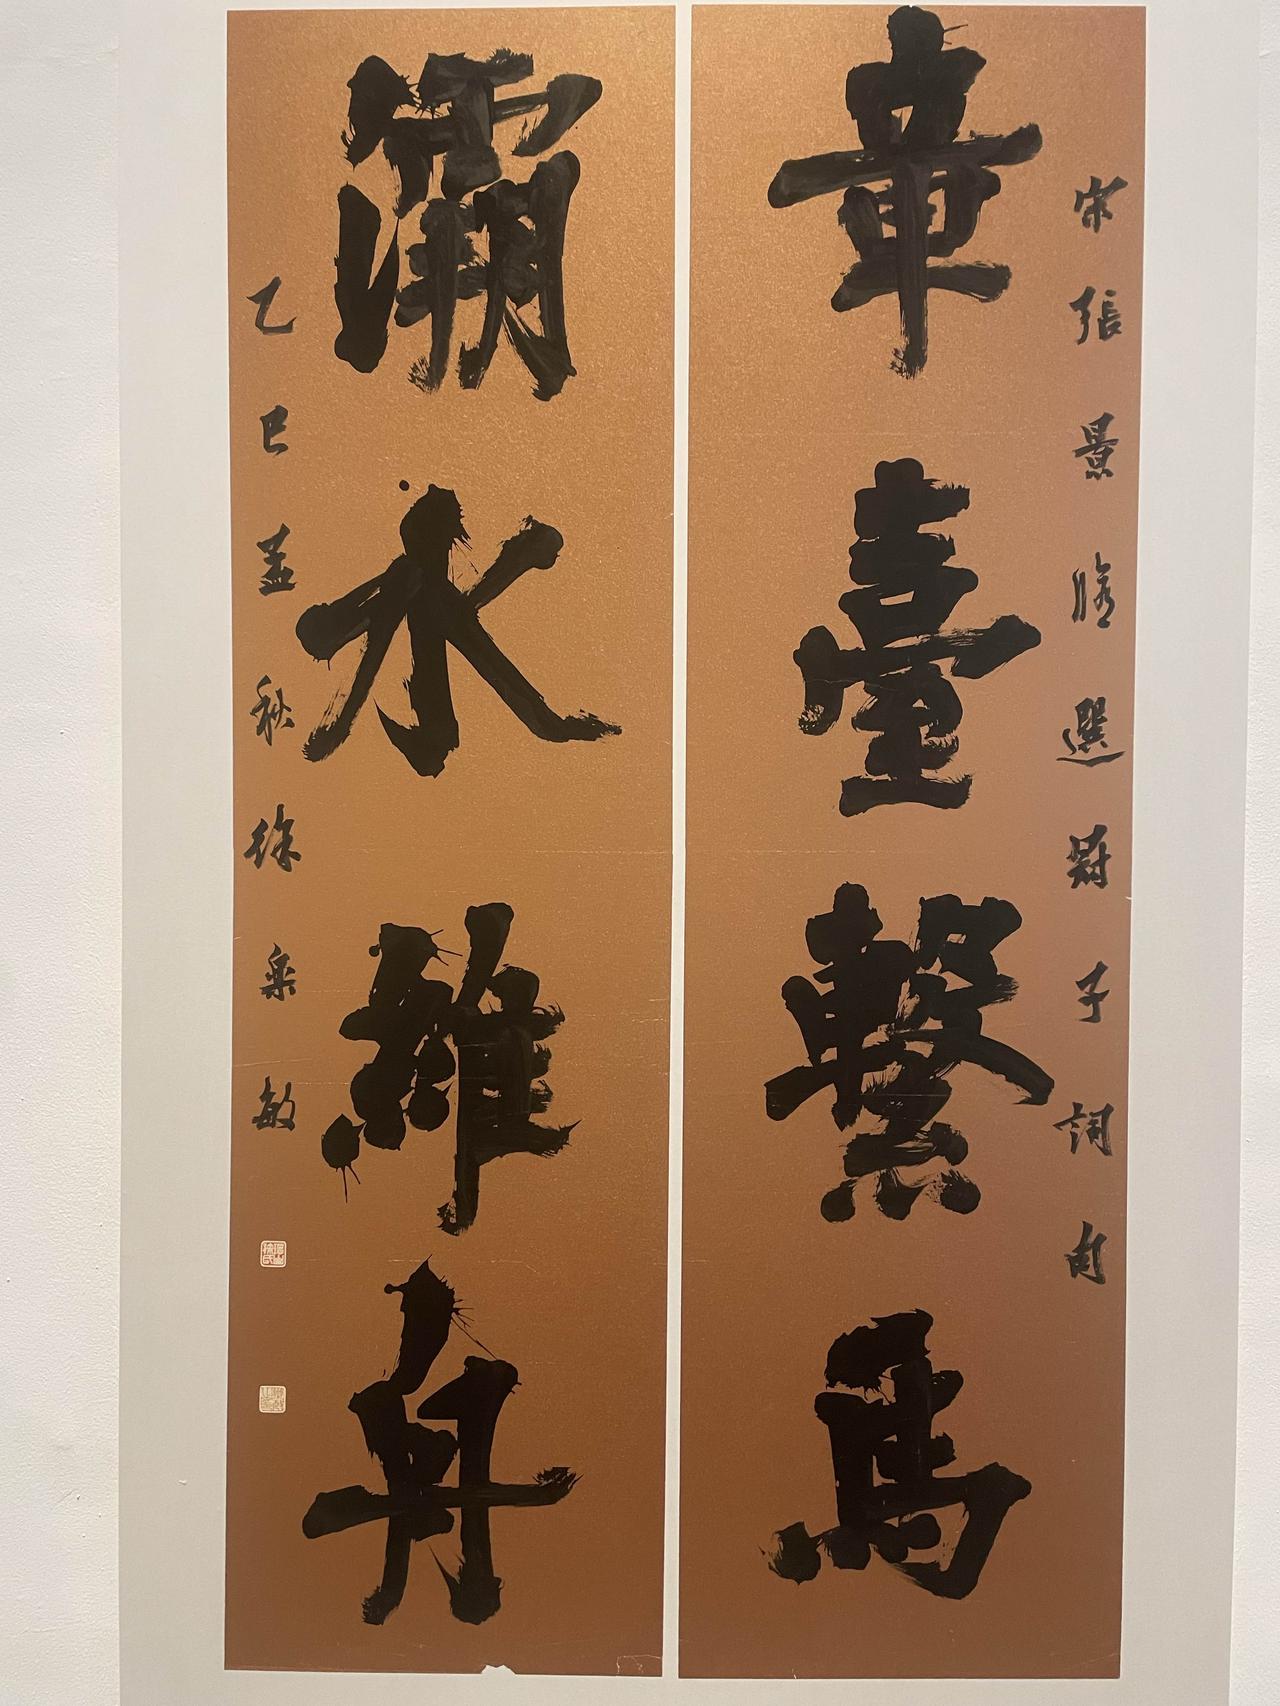 宋張景脩選冠子詞句
章臺繫馬
灞水維舟
乙巳孟秋徐 敏